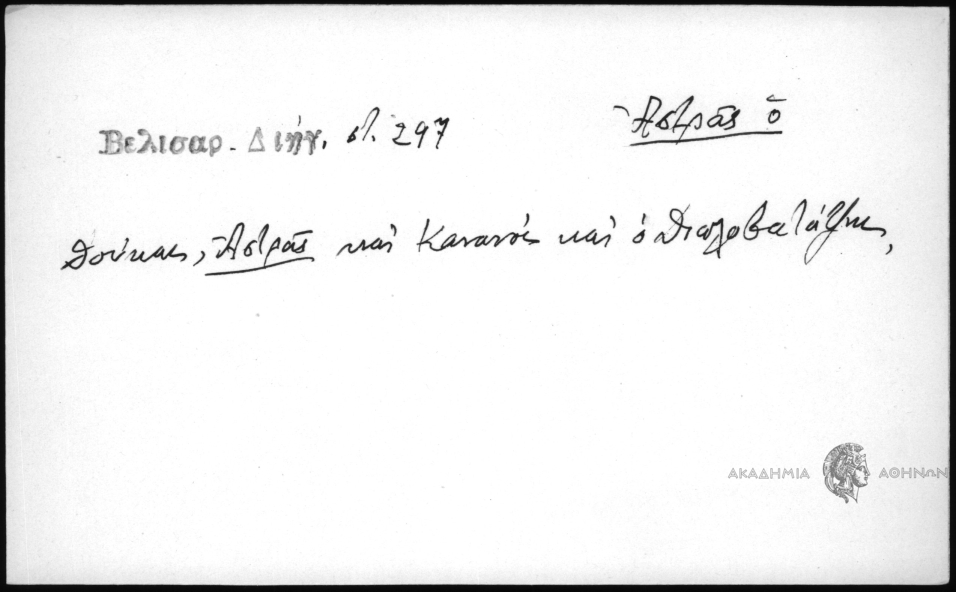 Βελισαρ. Διήγ. στ. 297
Ἀστρᾶς ὁ
Δούκας, Ἀστρᾶς καὶ Κανανὸς καὶ ὁ Διπλοβατάτζης,
ΑΚΑΔΗΜΙΑ ΑΘΗΝΩΝ